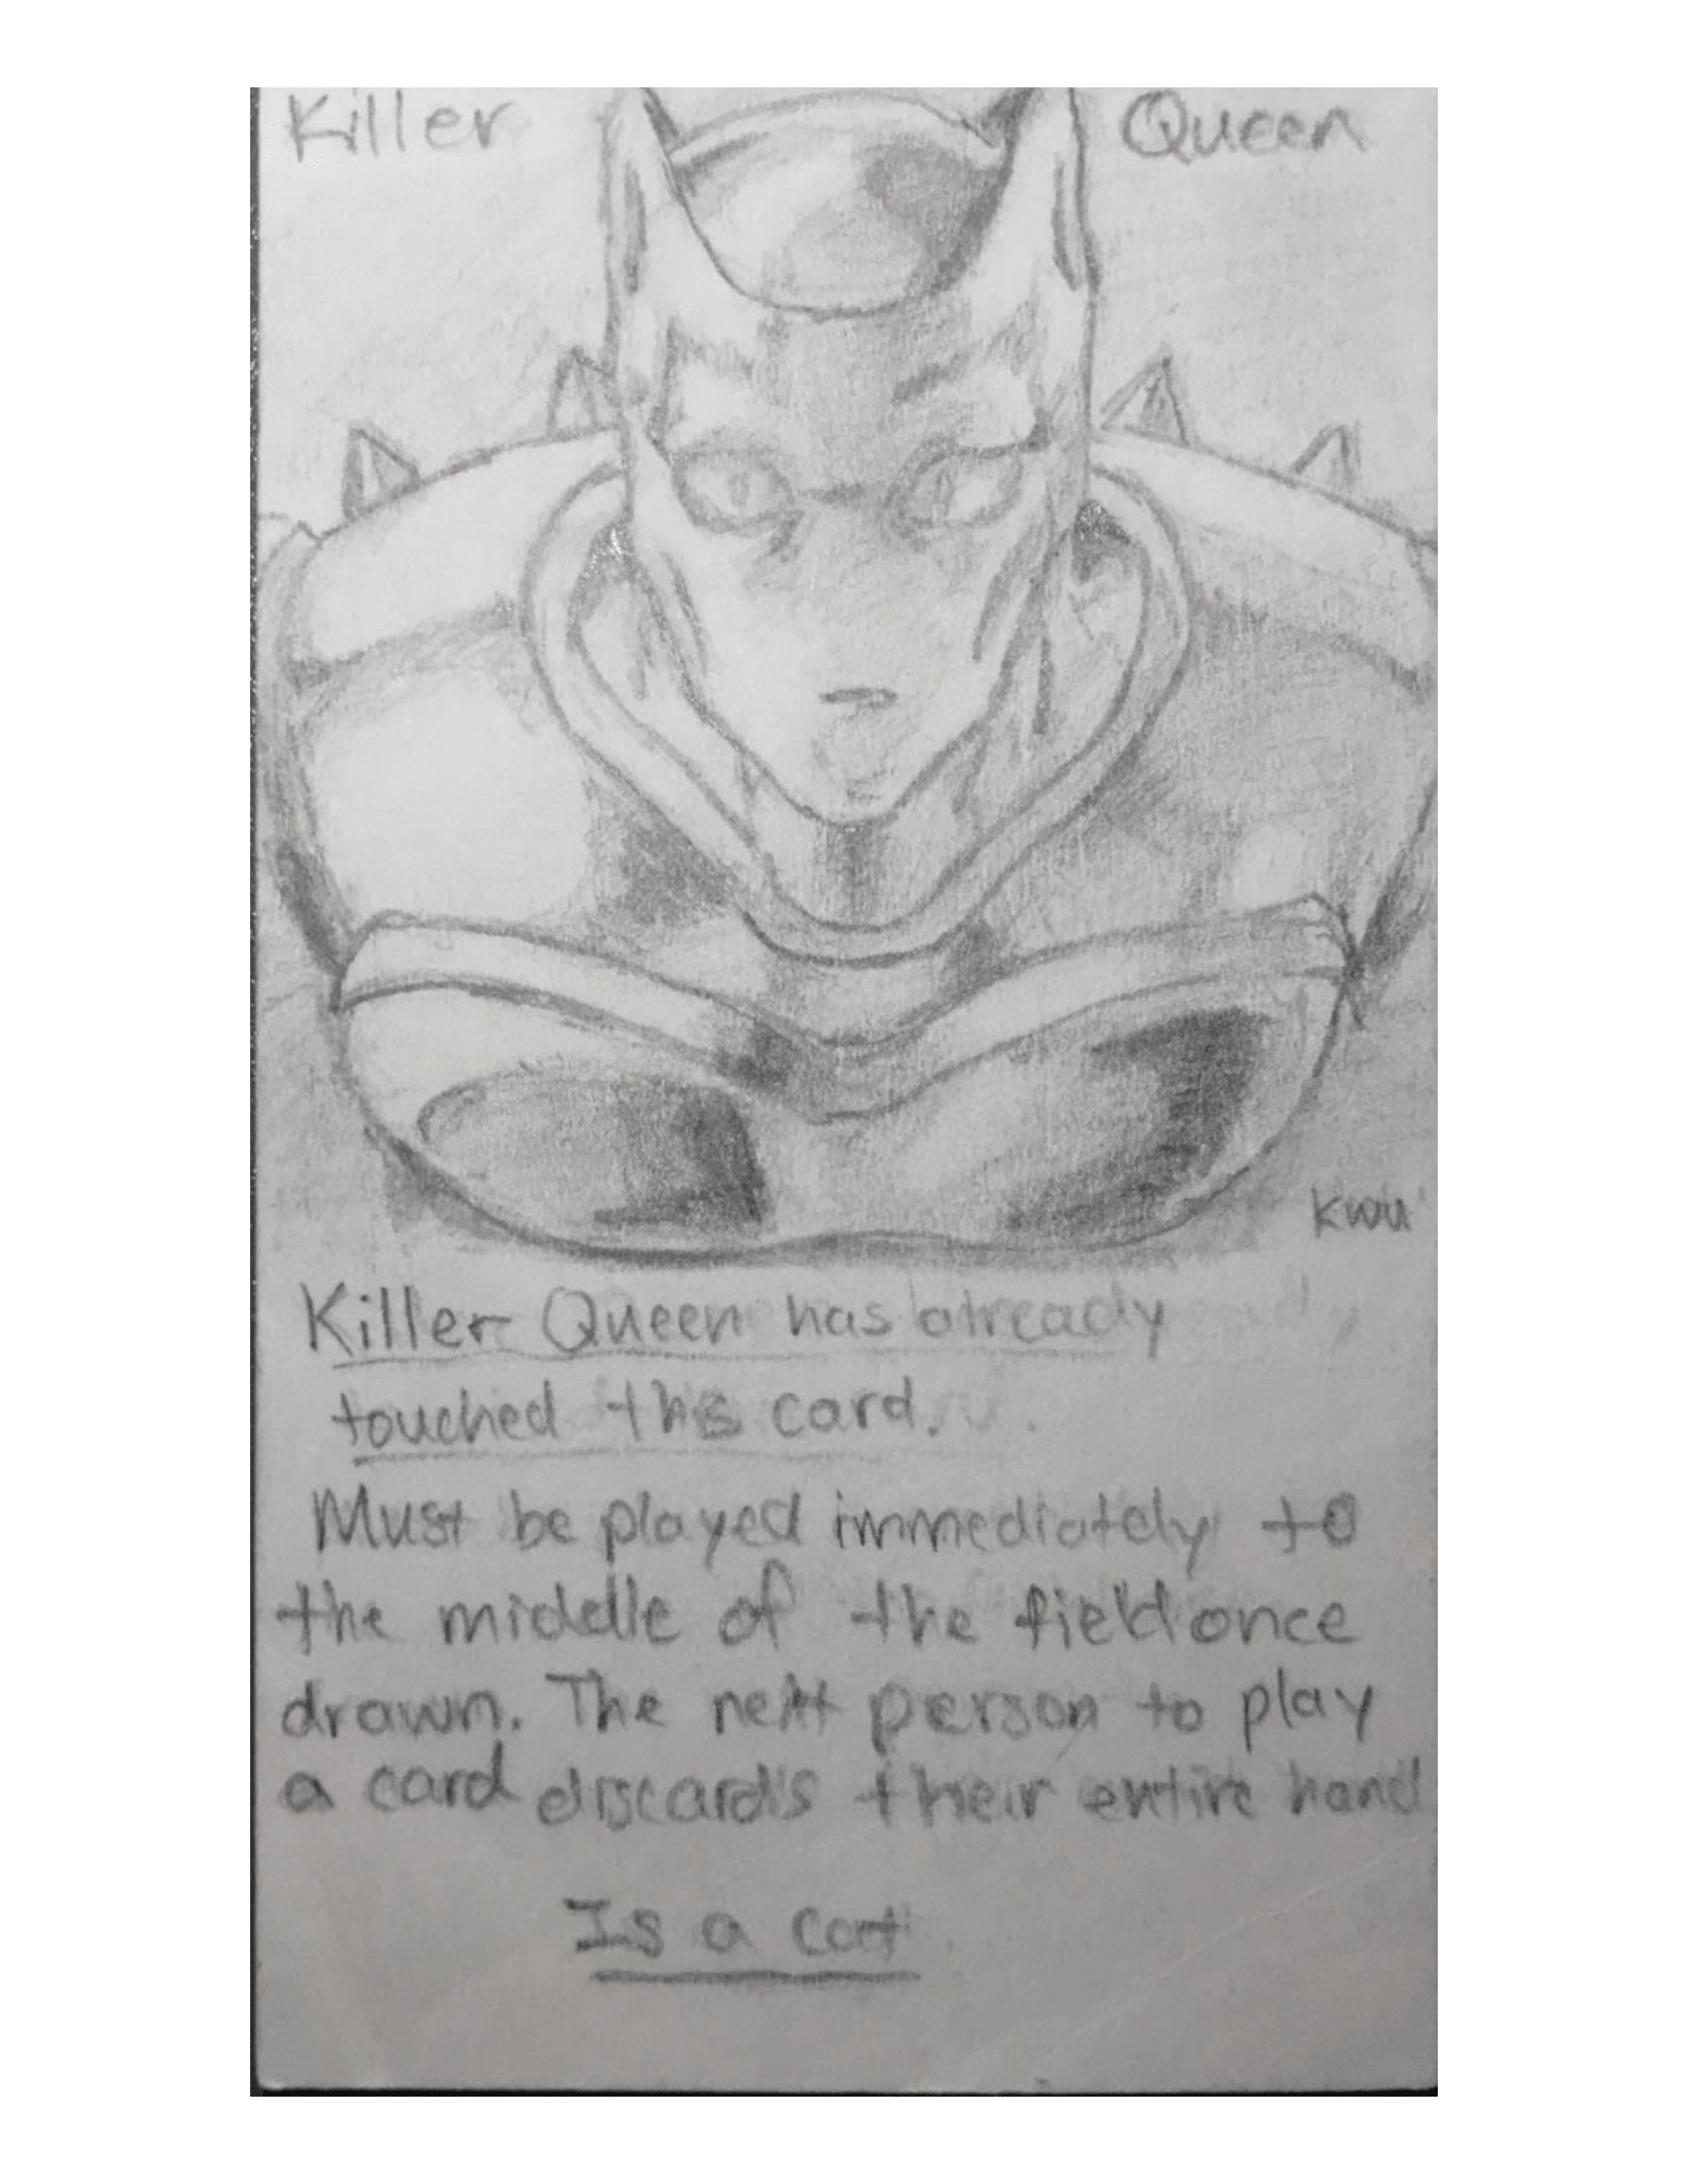 Killer Queen
Kwu
Killer Queen has already
touched this card.
Must be played immediately to
the middle of the field once
drawn. The next person to play
a card discards their entire hand
Is a cat